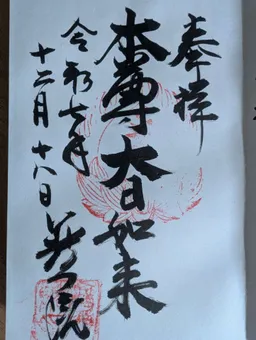 奉拝
本尊大日如来
令和七年
十二月十八日